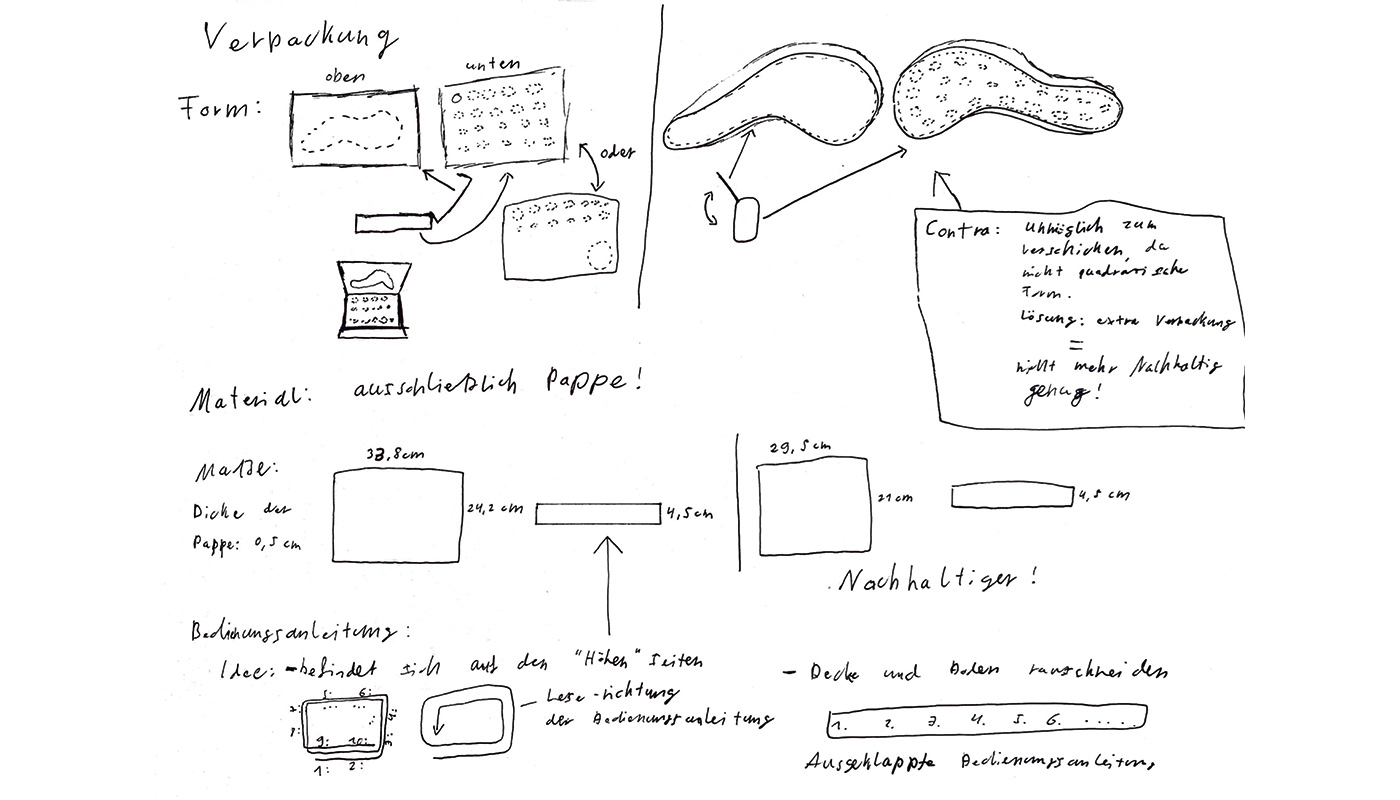 Verpackung
Form:
oben
unten
oder
Contra: unmöglich zum
verschicken, da
nicht quadratische
Form.
Lösung: extra Verpackung
=
nicht mehr Nachhaltig
genug!
Material: ausschließlich Pappe!
Maße:
Dicke der
Pappe: 0,5 cm
33,8cm
24,2 cm
4,5cm
29,5cm
21cm
4,5 cm
Nachhaltiger!
Bedienungsanleitung:
Idee: -befindet sich auf den "Höhen" Seiten
5: 6:
9: 10:
1: 2:
Lese-richtung
der Bedienungsanleitung
- Decke und Boden rausschneiden
1. 2. 3. 4. 5. 6. .....
Ausgeklappte Bedienungsanleitung